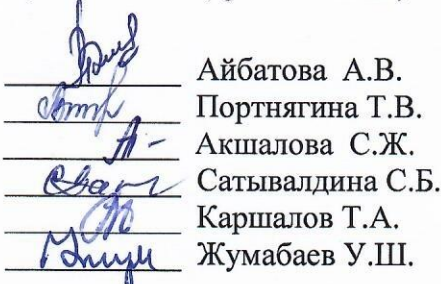 Айбатова А.В.
Портнягина Т.В.
Акшалова С.Ж.
Сатывалдина С.Б.
Каршалов Т.А.
Жумабаев У.Ш.